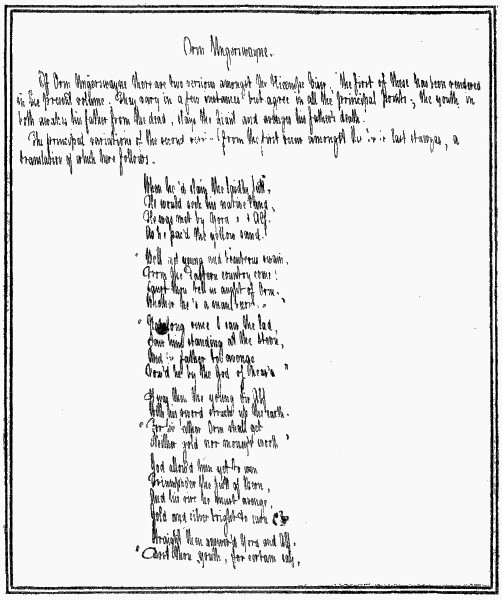 Orm Ungerswayne.
Of Orm Ungerswayne there are two versions amongst the Kiempe Viser; the first of these has been rendered
in the present volume. They vary in a few instances but agree in all the principal points; the youth in
both awakes his father from the dead, slays the Giant and avenges his father's death.
The principal variations of the second version from the first occur amongst the last stanzas, a
translation of which here follows.
When he'd slain the loidly Jutt,
He would seek his native land,
He was met by Gord and Alf,
As he pac'd the yellow sand.
" Well met young and beauteous swain,
From the Eastern country come!
Canst thou tell us aught of Orm,
Whether he is
" Not long since I saw the lad,
Saw him standing at the Stern,
And his father to avenge
Vow'd he by the God of
Away then the young Sir Alf
With his sword struck up the earth.
" For his father Orm shall get
Neither gold nor money's worth "
God allow'd him yet to win
Triumph o'er the full of
And his sire he must avenge,
Gold and silver bright to
Straight then answer'd Gord and Alf.
" Canst thou youth, for certain say,